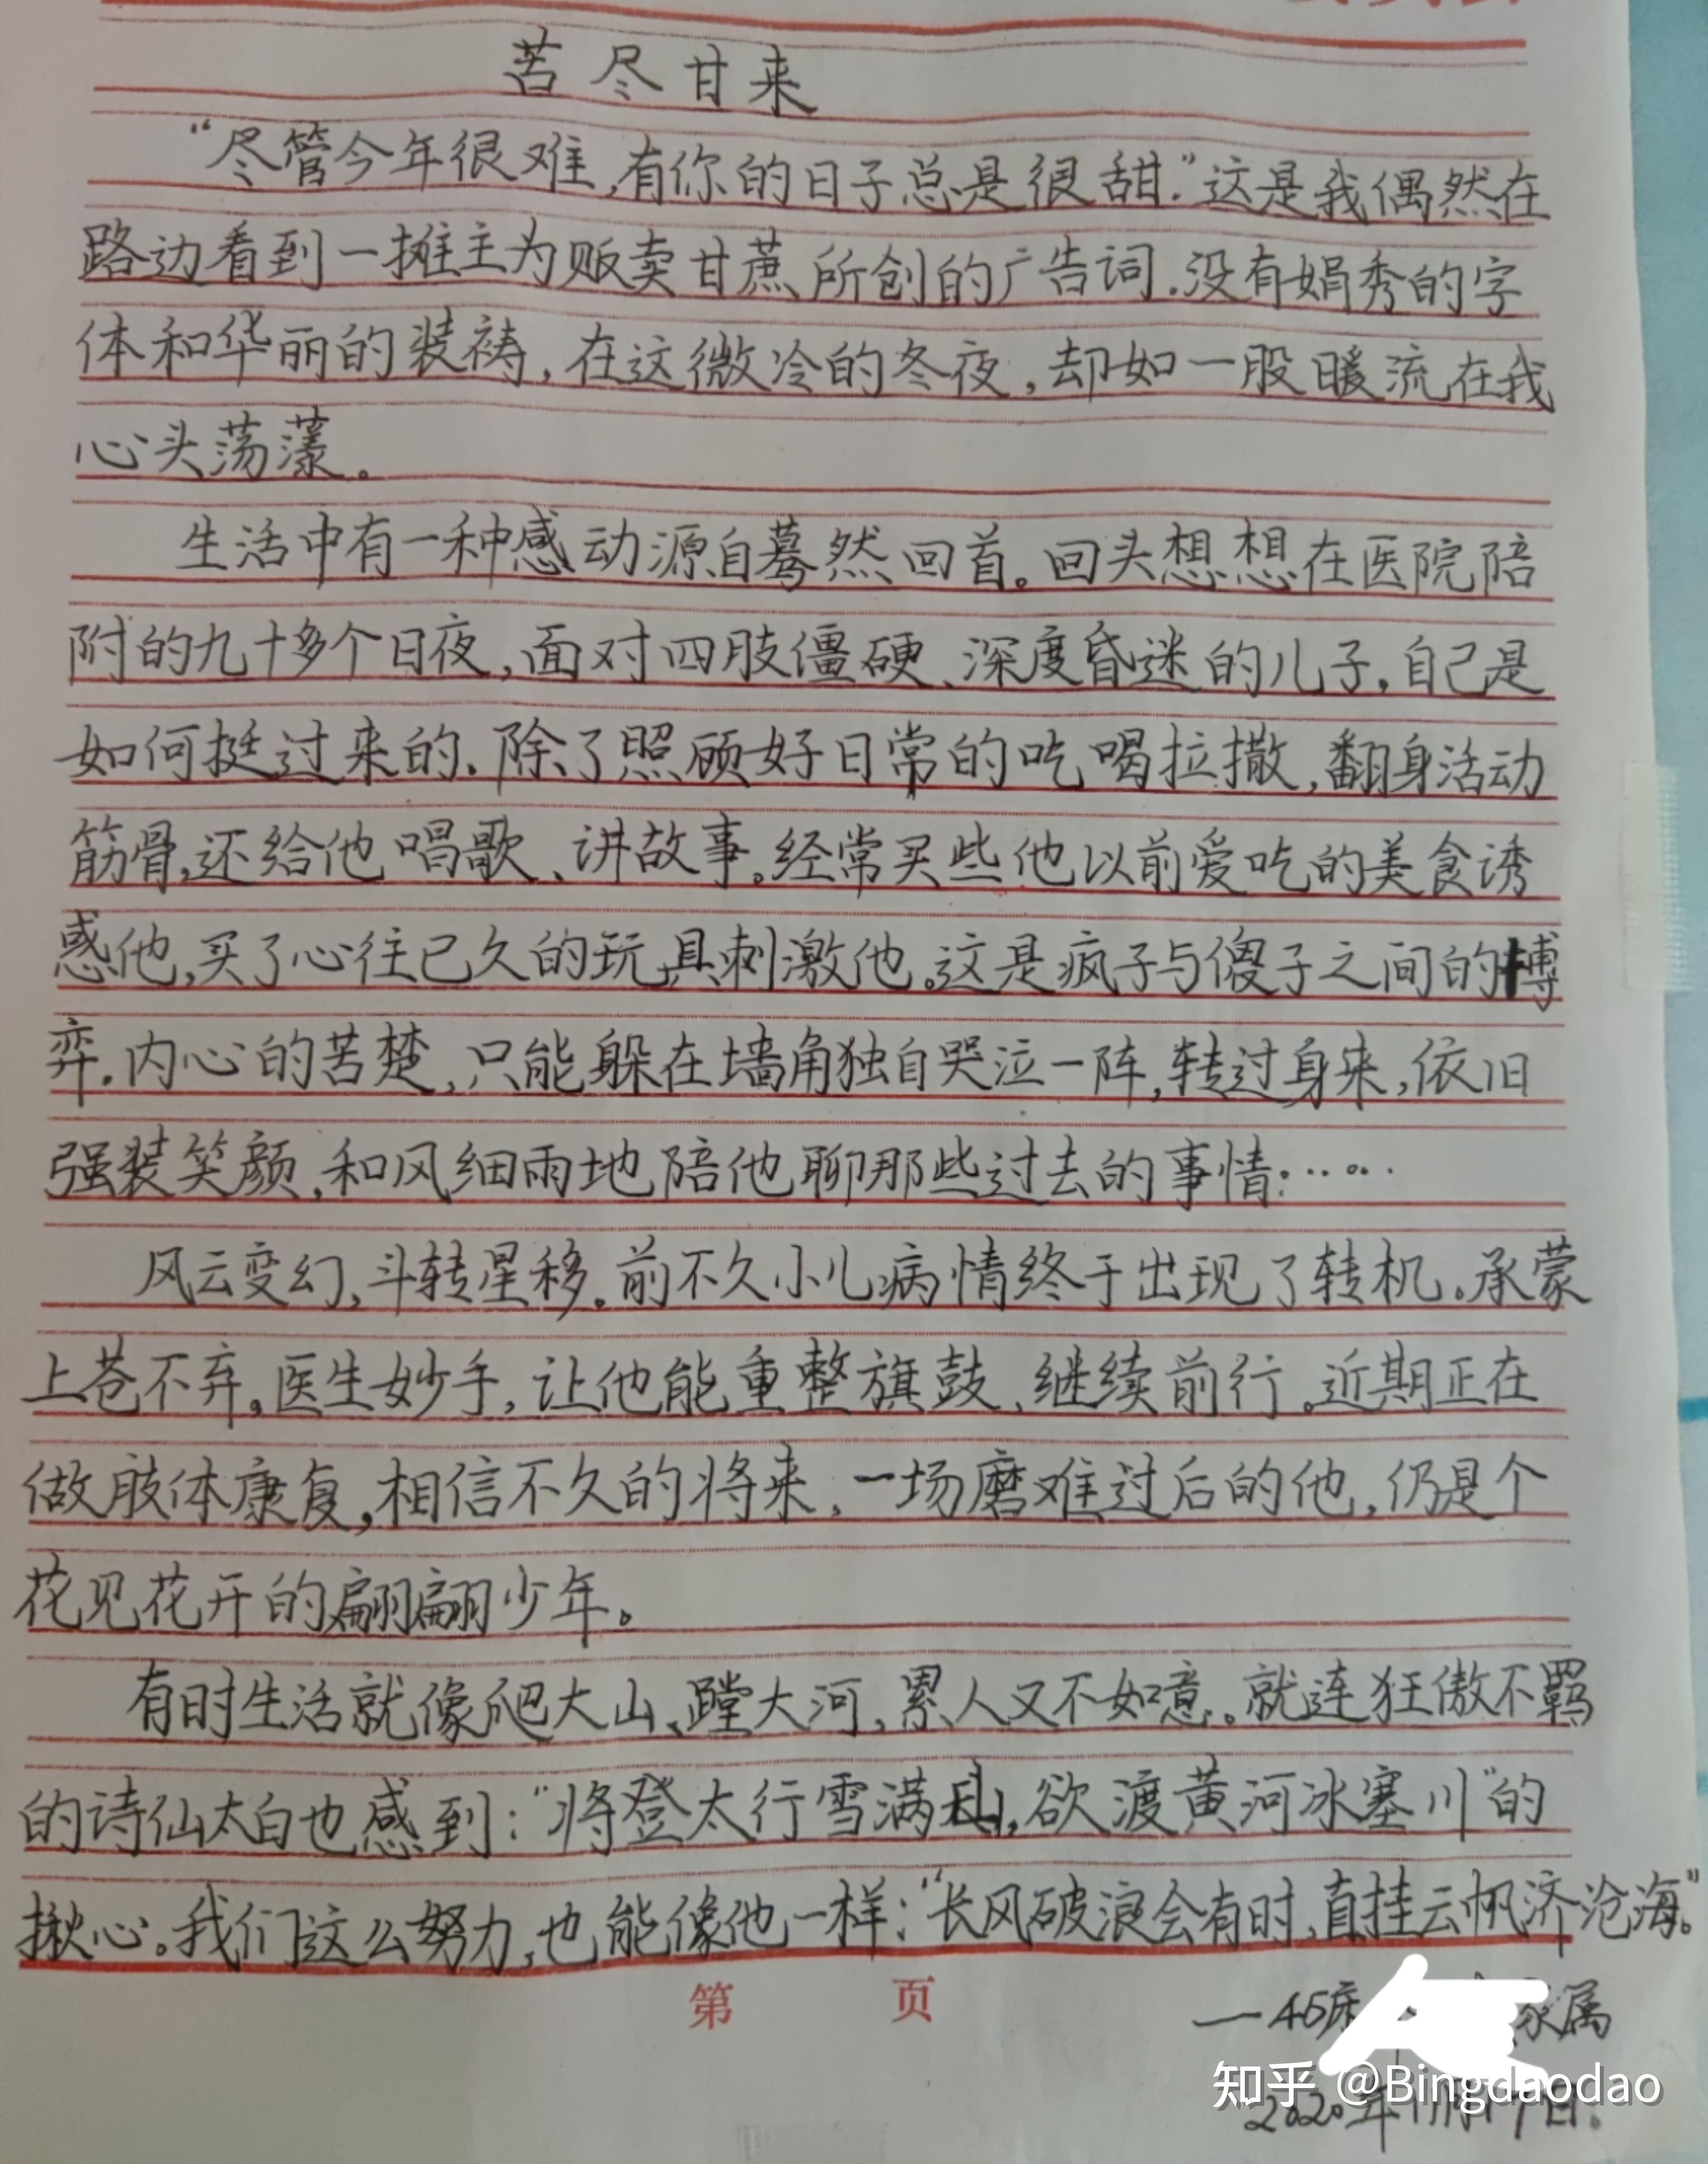 苦尽甘来
“尽管今年很难,有你的日子总是很甜.”这是我偶然在
路边看到一摊主为贩卖甘蔗所创的广告词.没有娟秀的字
体和华丽的装祷,在这微冷的冬夜,却如一股暖流在我
心头荡漾。
生活中有一种感动源自蓦然回首。回头想想在医院陪
附的九十多个日夜,面对四肢僵硬、深度昏迷的儿子,自己是
如何挺过来的.除了照顾好日常的吃喝拉撒,翻身活动
筋骨,还给他唱歌、讲故事。经常买些他以前爱吃的美食诱
惑他,买了心往已久的玩具刺激他。这是疯子与傻子之间的博
弈.内心的苦楚,只能躲在墙角独自哭泣一阵,转过身来,依旧
强装笑颜,和风细雨地陪他聊那些过去的事情:……
风云变幻,斗转星移.前不久小儿病情终于出现了转机.承蒙
上苍不弃,医生妙手,让他能重整旗鼓、继续前行.近期正在
做肢体康复,相信不久的将来,一场磨难过后的他,仍是个
花见花开的翩翩少年。
有时生活就像爬大山、蹚大河,累人又不如意。就连狂傲不羁
的诗仙太白也感到:“将登太行雪满山,欲渡黄河冰塞川”的
揪心。我们这么努力,也能像他一样:“长风破浪会有时,直挂云帆济沧海。”
第 页
—45床 家属
知乎 @Bingdaodao
2020年11月 日.